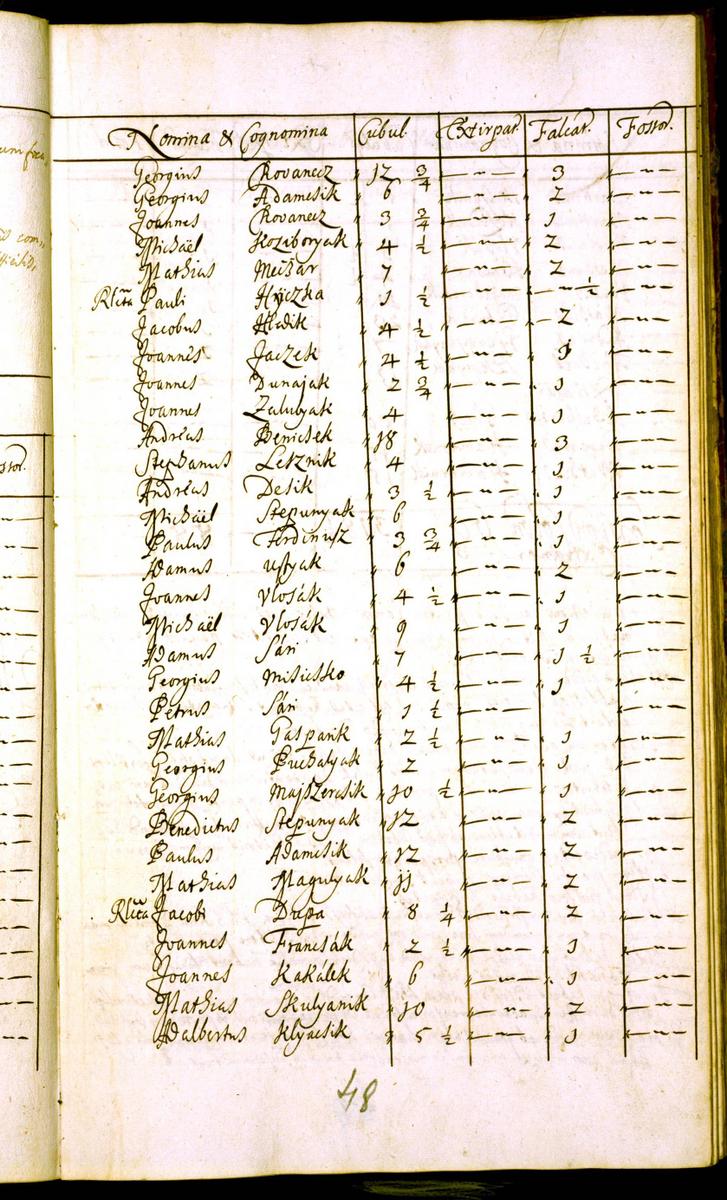 um fra,
is com,,
ficilis,
ossor.
Nomina & Cognomina Cubul. Extirpat. Falcat. Fossor.
Georgius Chovanecz " 12 3/4 " — " — 3 " — " —
Georgius Adamcsik " 6 " — " — " 2 " — " —
Joannes Chovanecz " 3 3/4 " — " — " 1 " — " —
Michaël Koziboryak " 4 1/2 " — " — " 2 " — " —
Mathias Mechar " 7 " — " — " 2 " — " —
Rlicta Pauli Hyczka " 1 1/2 " — " — — " 1/2 " — " —
Jacobus Hladik " 4 1/2 " — " — 2 " — " —
Joannes Jaczek " 4 1/2 " — " — " 1 " — " —
Joannes Dunajak " 2 3/4 " — " — " 1 " — " —
Joannes Zalubyak " 4 " — " — " 1 " — " —
Andreas Benicsek " 18 " — " — " 3 " — " —
Stephanus Letznik " 4 " — " — " 1 " — " —
Andreas Desik " 3 1/2 " — " — " 1 " — " —
Michaël Stepunyak " 6 " — " — " 1 " — " —
Paulus Ferdinusz " 3 3/4 " — " — " 1 " — " —
Adamus Ustyak " 6 " — " — " 2 " — " —
Joannes Vlosák " 4 1/2 " — " — " 1 " — " —
Michaël Vlosák " 9 " — " — " 1 " — " —
Adamus Sári " 7 " — " — " 1 1/2 " — " —
Georgius " 4 1/2 " — " — " 1 " — " —
Petrus Sári " 1 1/2 " — " — " — " —
Mathias Gasparik " 2 1/2 " — " — " 1 " — " —
Georgius Puchalyak " 2 " — " — " 1 " — " —
Georgius Majszercsik " 10 1/2 " — " — " 1 " — " —
Benedictus Stepunyak " 12 " — " — " 2 " — " —
Paulus Adamcsik " 12 " — " — " 2 " — " —
Mathias Magulyak " 11 " — " — " 2 " — " —
Rlicta Jacobi Dupa " 8 1/4 " — " — " 2 " — " —
Joannes Francsák " 2 1/2 " — " — " 1 " — " —
Joannes Kakálek " 6 " — " — " 1 " — " —
Mathias Skulyanik " 10 " — " — " 2 " — " —
Adalbertus Klyacsik " 5 1/2 " — " — " 1 " — " —
48